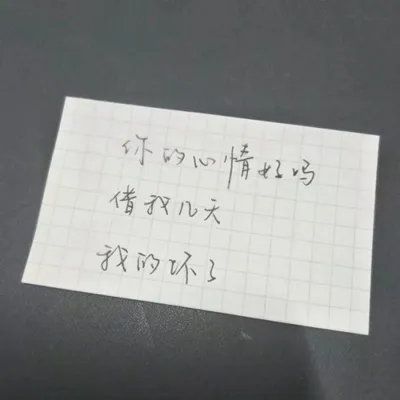 你的心情好吗
借我几天
我的坏了